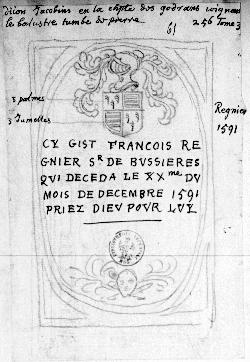 dijon Jacobins en la chple des godrans joignant
le balustre tumbe de pierre
61
256 Tome 3
3 palmes
3 Jumelles
Regnier
1591
CY GIST FRANCOIS RE
GNIER Sr DE BVSSIERES
QVI DECEDA LE XXme DV
MOIS DE DECEMBRE 1591
PRIEZ DIEV POVR LVY